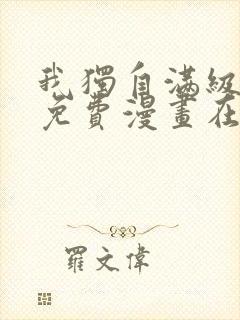 我獨自滿級
免費漫畫在
羅文偉